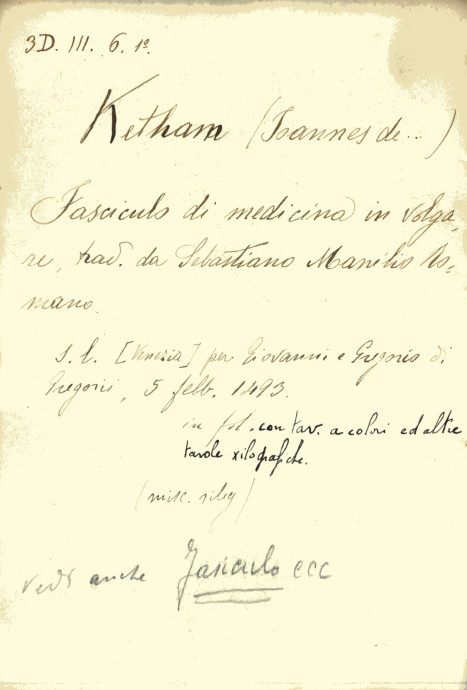 3D. III. 6. 1º
Ketham (Joannes de...)
Fasciculo di medicina in volga,
re, trad. da Sebastiano Manilio Ro-
mano.
s. l. [Venezia] per Giovanni e Gregorio di
Gregorii, 5 febb. 1493.
in fol. con tav. a colori ed altre
tavole xilografiche.
(misc. rileg)
vedi anche Fasciculo ecc